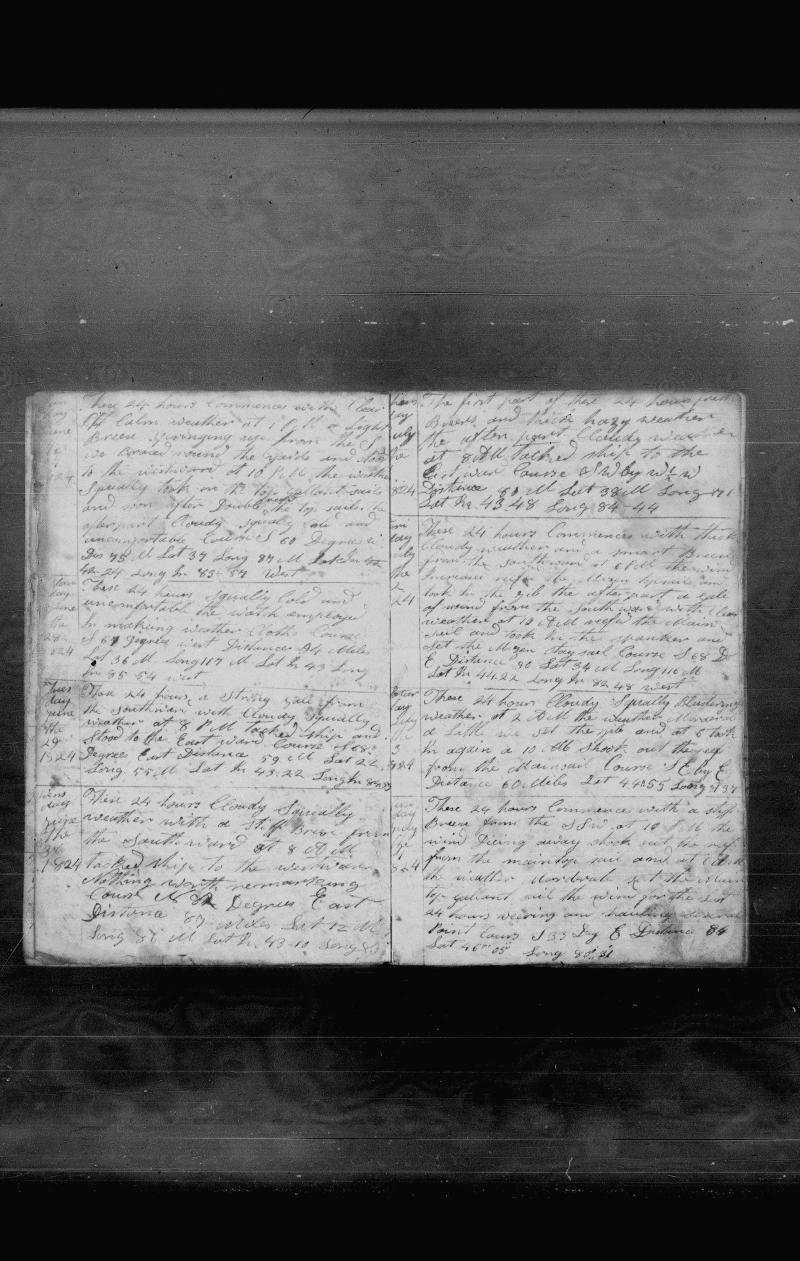 These 24 hours Commences with Clear
Calm weather at 1 P M a light
Breese Springing up from the S
we Braced round the yards and
to the westward at 10 P M the weather
Squally took in the top Gallant sails
and soon after Double reeft the top sails the
afterpart Cloudy Squally Cold and
uncomfortable Course S 60 Degrees W
Dis 75 M Lat 37 Long 87 M Lat In
42-24 Long In 83-57 West
These 24 hours Squally Cold and
uncomfortable the watch employed
In making weather Cloths Course
S 67 Degrees West Distance 94 Miles
Lat 36 M Long 117 M Lat In 43 Long
In 85 54 West
Tues
day
June
the
29
1824
These 24 hours a Strong gale from
the Southward with Cloudy Squally
weather at 8 P M tacked ship and
Stood to the East ward Course S 68
Degrees East Distance 59 M Lat 22
Long 55 M Lat In 43-22 Long In
the
30
1824
These 24 hours Cloudy Squally
weather with a Stiff Breese from
the Southward at 8 A M
tacked Ship to the westward
Nothing worth remarking
Course N 82 Degrees East
Distance 87 Miles Lat 12 M
Long 86 M Lat In 43-10 Long 83
day
July
824
The first part of these 24 hours fresh
Breeses and thick hazy weather
the after part Cloudy weather
at 8 A M tacked ship to the
East ward Course S W by W 1/2 W
Distance 80 M Lat 38 M Long
Lat In 43 48 Long 84-44
day
July
the
2
24
These 24 hours Commences with thick
Cloudy weather and a smart Breese
from the Southward at 6 P M the wind
Increase reeft the Mizen Spencer and
took in the gib the after part a gale
of wind from the Southward with Clear
weather at 10 A M reeft the Main
sail and took in the spanker and
set the Mizen stay sail Course S 68 D
E Distance 90 Lat 34 M Long 116 M
Lat In 44 22 Long In 82 48 West
day
July
3
824
These 24 hours Cloudy Squally Blustering
weather at 2 P M the weather Moderated
a Little we set the gib and at 5 took
In again a 10 M Shook out the reef
from the Mainsail Course S E by E
Distance 60 Miles Lat 44 55 Long 81 37
day
July
the
4
824
These 24 hours Commence with a stiff
Breese from the S S W at 10 P M the
wind Dieing away shook out the reef
from the maintop sail and at
the weather Moderate set the Main
top gallant sail the wind for the Last
24 hours veering and hauling several
Point Cours S 33 Deg E Distance 84
Lat 46 05 Long 80 31